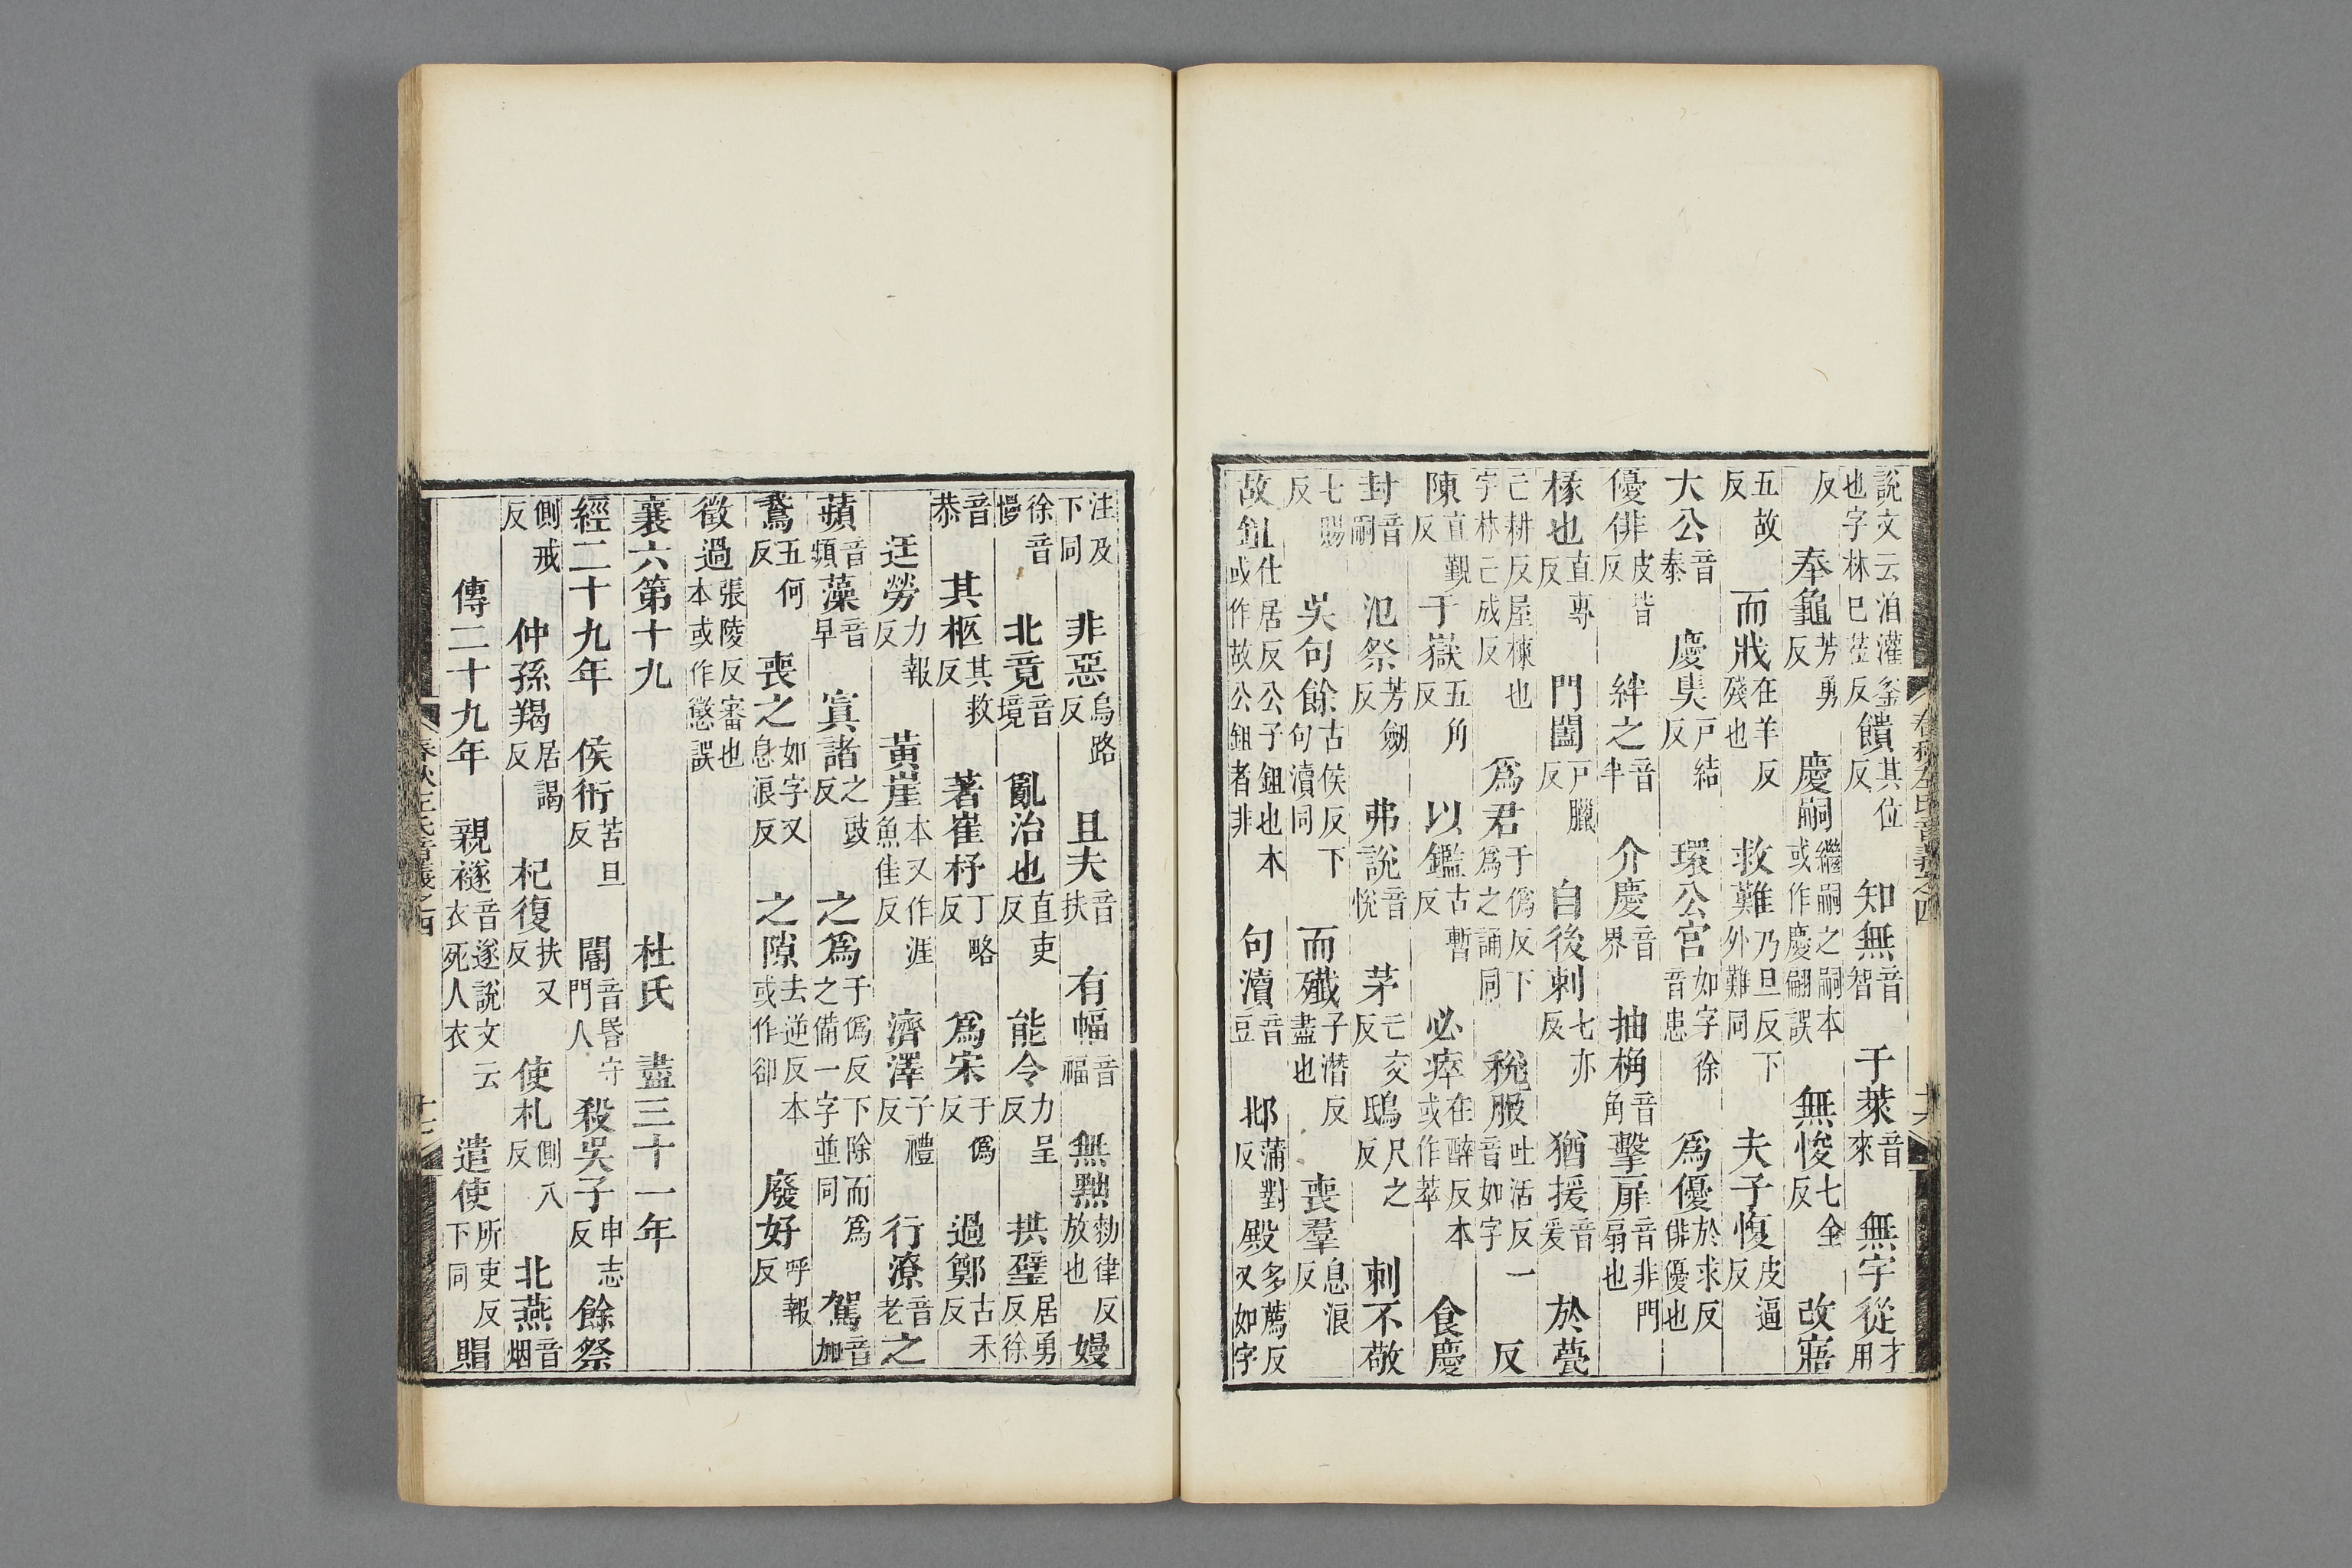 說文云洎灌釜也字林巳莅反饋其位反 知無音智 于萊音來 無宇從才用
反 奉龜芳勇反 慶嗣繼嗣之嗣本或作慶翩誤 無悛七全反 改寤
五故反 而戕在羊反殘也 救難乃旦反下外難同 夫子愎皮逼反
大公音泰 慶㚖戶結反 環公宮如字徐音患 爲優於求反俳優也
優俳皮皆反 絆之音半 介慶音界 抽桷音角擊扉音非門扇也
椽也直專反 門闔戸臘反 自後刺七亦反 猶援音爰 於甍
亡耕反屋棟也字林亡成反 爲君于僞反下爲之誦同 稅服吐活反一音如字 反
陳直覲反 于嶽五角反 以鑑古暫反 必瘁在醉反本或作萃 食慶
封音嗣 氾祭芳劒反 弗說音悅 茅亡交反鴟尺之反 刺不敬
七賜反 吳句餘古侯反下句瀆同 而殲子潛反盡也 喪羣息浪反
故鉏仕居反公子鉏也本或作故公鉏者非 句瀆音豆 邶蒲對反殿多薦反又如字
春秋左氏音義之四 十六
注及下同 非惡烏路反 且夫音扶 有幅音福 無黜勑律反放也嫚
徐音慢 北竟音境 亂治也直吏反 能令力呈反 拱璧居勇反徐
音恭 其柩其救反 著崔杼丁略反 爲宋于僞反 過鄭古禾反
迋勞力報反 黃崖本又作涯魚佳反 濟澤子禮反 行潦音老之
蘋音頻藻音早 寘諸之豉反 之爲于僞反下除而爲之備一字並同 駕音加
鵞五何反 喪之如字又息浪反 之隙去逆反本或作郤 廢好呼報反
徵過張陵反審也本或作懲誤
襄六第十九 杜氏 盡三十一年
經二十九年 侯衎苦旦反 閽音昬守門人 殺吳子申志反餘祭
側戒反 仲孫羯居謁反 杞復扶又反 使札側八反 北燕音烟
傳二十九年 親襚音遂說文云衣死人衣 遣使所吏反下同 賵
春秋左氏音義之四